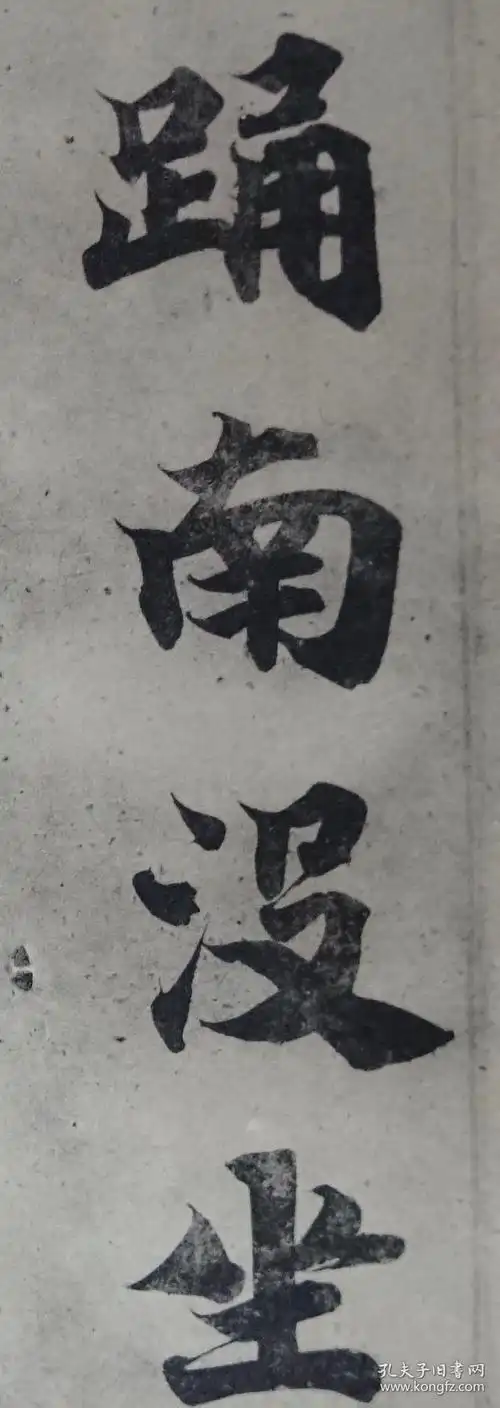 踊南没坐
孔夫子旧书网
www.kongfz.com